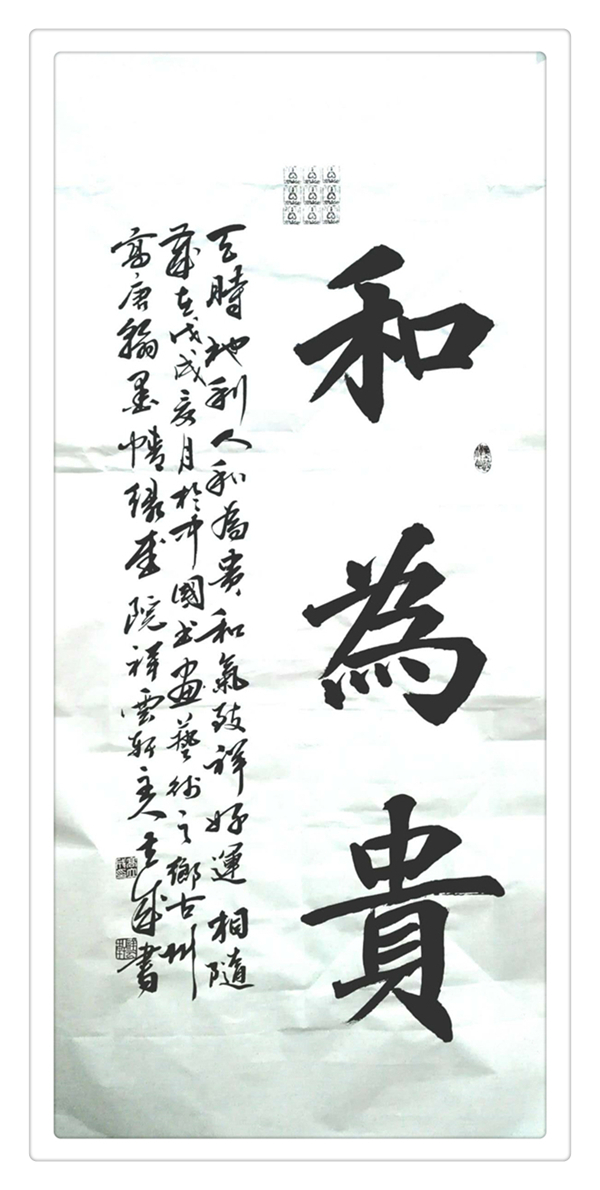 和為貴
天時地利人和為貴和氣致祥好運相隨
歲在戊戌亥月於中國書画藝術之鄉古州
高唐翰墨情緣書院祥雲軒主人書